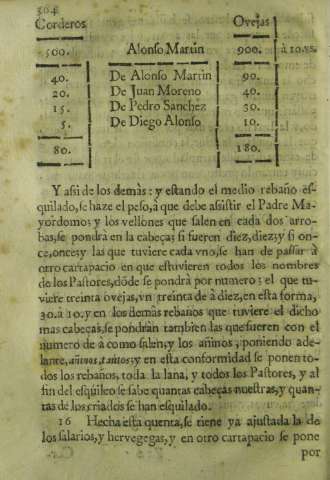 364
Corderos. Ovejas.
500. Alonso Martin 900. à 10.vs.
40. De Alonso Martin 90.
20. De Juan Moreno 40.
15. De Pedro Sanchez 30.
5. De Diego Alonso 10.
80. 180.
Y assi de los demàs: y estando el medio rebaño es-
quilado, se haze el peso, à que debe assistir el Padre Ma-
yordomo; y los vellones que salen en cada dos arro-
bas, se pondrà en la cabeça; si fueren diez, diez; y si on-
ce, once; y las que tuviere cada vno, se han de passar à
otro cartapacio en que estuvieren todos los nombres
de los Pastores, dõde se pondrà por numero: el que tu-
viere treinta ovejas, vn treinta de à diez, en esta forma,
30. à 10. y en los demàs rebaños que tuviere el dicho
mas cabeças, se põdràn tambien las que fueren con el
numero de à como salen, y los añinos, poniendo ade-
lante, añinos, tantos: y en esta conformidad se ponen to-
dos los rebaños, toda la lana, y todos los Pastores, y al
fin del esquileo se sabe quantas cabeças nuestras, y quan-
tas de los criados se han esquilado.
16 Hecha esta quenta, se tiene ya ajustada la de
los salarios, y hervegegas, y en otro cartapacio se pone
por